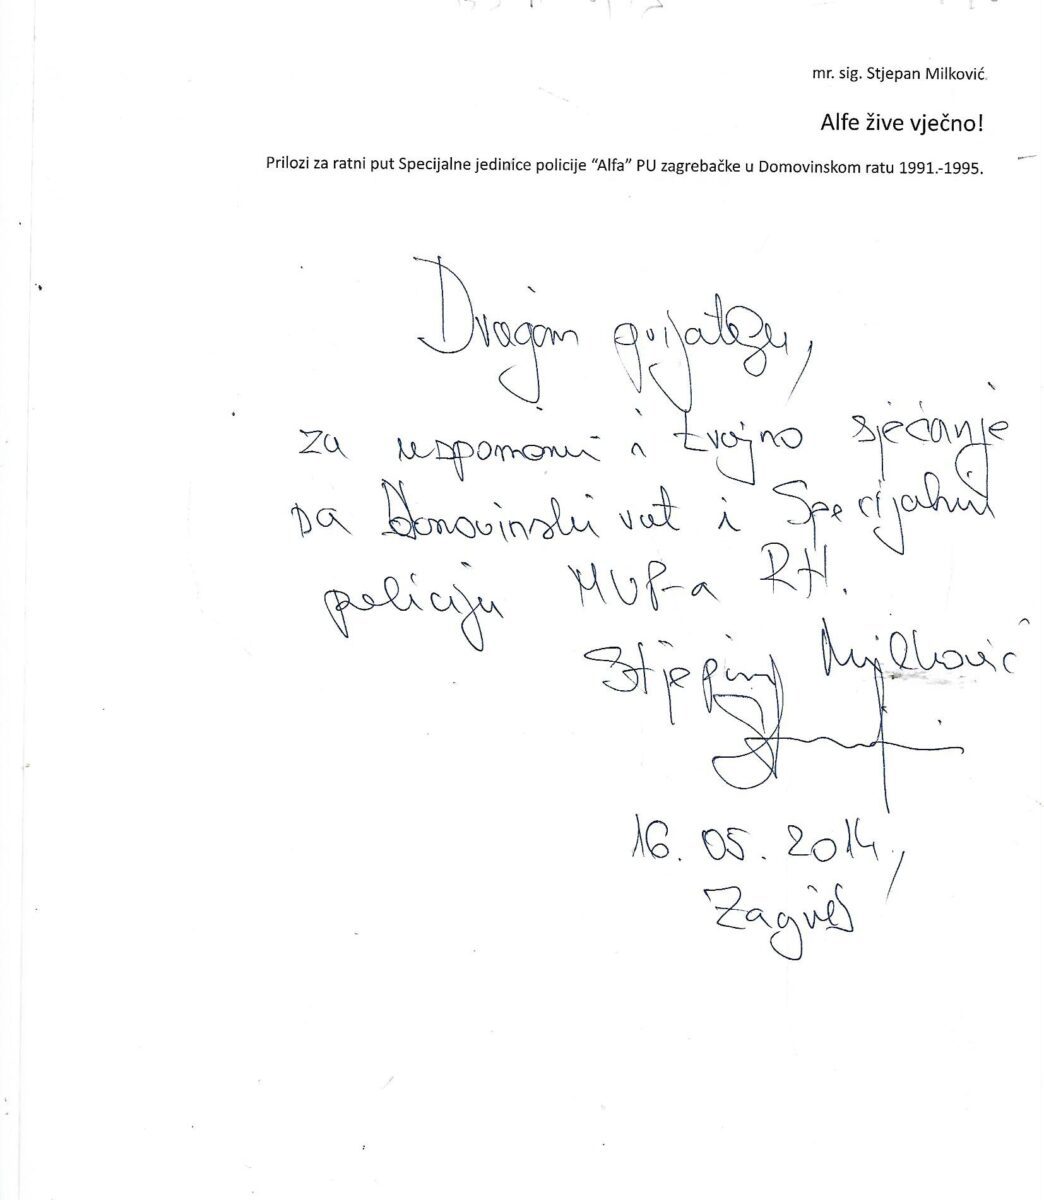 mr. sig. Stjepan Milković
Alfe žive vječno!
Prilozi za ratni put Specijalne jedinice policije “Alfa” PU zagrebačke u Domovinskom ratu 1991.-1995.
Dragom prijatelju,
za uspomenu i trajno sjećanje
na Domovinski rat i Specijalnu
policiju MUP-a RH.
Stjepan Milković
16. 05. 2014,
Zagreb